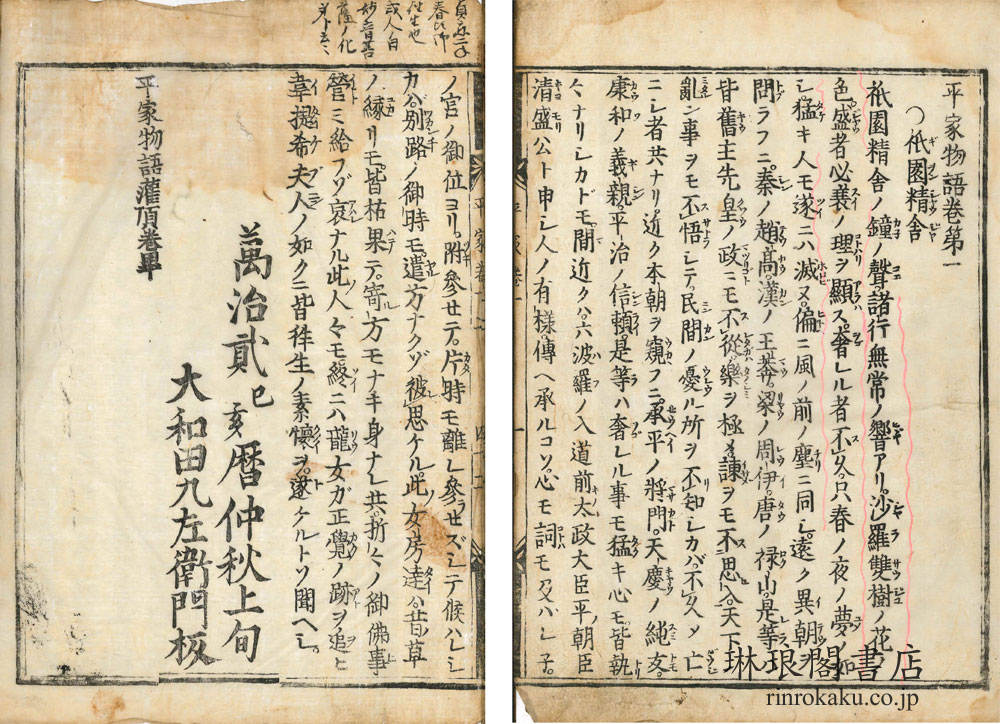 平家物語巻第一
祇園精舎
祇園精舎ノ鐘ノ聲諸行無常ノ響アリ。沙羅雙樹ノ花ノ
色盛者必衰ノ理ヲ顯ス。奢レル者不久只春ノ夜ノ夢ノ如
シ。猛キ人モ遂ニハ滅ヌ。偏ニ風ノ前ノ塵ニ同シ。遠ク異朝ヲ
問ラフニ。秦ノ趙高。漢ノ王莽。梁ノ周伊。唐ノ禄山。是等ハ
皆舊主先皇ノ政ニモ不從樂ヲ極メ諫ヲモ不思入天下ノ
亂ン事ヲモ不悟シテ。民間ノ憂ル所ヲ不知シカバ。不久〆亡
ニシ者共ナリ近ク本朝ヲ窺フニ。承平ノ將門。天慶ノ純友。
康和ノ義親。平治ノ信頼。是等ハ奢レル事モ猛キ心モ皆執
々ナリシカドモ。間近クハ。六波羅ノ入道前太政大臣平朝臣
清盛公ト申シ人ノ有樣。傳ヘ承ルコソ。心モ詞モ及ハレ子。
ノ宮ノ御位ヨリ。附參セテ。片時モ離レ參ラセズシテ候ハレシ
カバ。別路ノ御時モ。遣方ナクゾ彼思ケル。此女房達ハ昔ノ草
ノ縁リモ。皆枯果テ。寄方モナキ身ナレ共。折々ノ御佛事
營ミ給フゾ哀ナル此人々モ。終ニハ龍女ガ正覺ノ跡ヲ追ヒ
韋提希夫人ノ如ク二皆徃生ノ素懷ヲ。遂ケルトソ聞ヘシ。
平家物語灌頂巻畢
萬治貳己亥暦仲秋上旬
大和田九左衛門板
琳琅閣書店
rinrokaku.co.jp